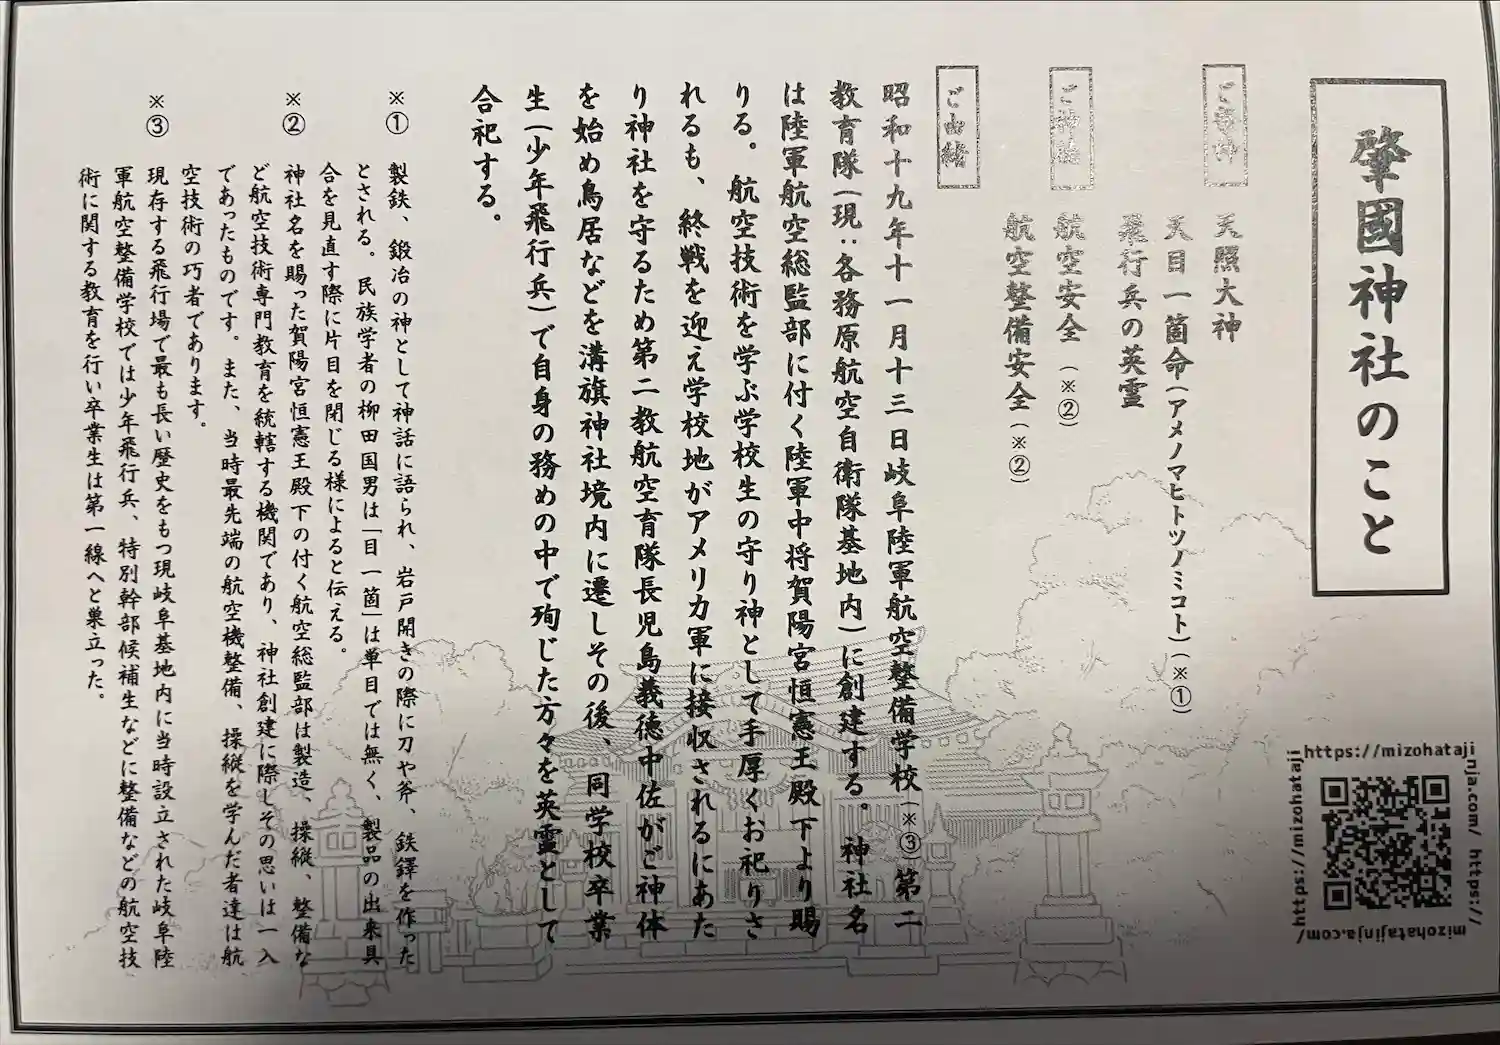 肇國神社のこと
ご祭神
天照大神
天目一箇命(アメノマヒトツノミコト)(※①)
飛行兵の英霊
ご神徳
航空安全(※②)
航空整備安全(※②)
ご由緒
昭和十九年十一月十三日岐阜陸軍航空整備学校(※③)第二
教育隊(現:各務原航空自衛隊基地内)に創建する。神社名
は陸軍航空総監部に付く陸軍中将賀陽宮恒憲王殿下より賜
りる。航空技術を学ぶ学校生の守り神として手厚くお祀りさ
れるも、終戦を迎え学校地がアメリカ軍に接収されるにあた
り神社を守るため第二教航空育隊長児島義徳中佐がご神体
を始め鳥居などを溝旗神社境内に遷しその後、同学校卒業
生(少年飛行兵)で自身の務めの中で殉じた方々を英霊として
合祀する。
※① 製鉄、鍛冶の神として神話に語られ、岩戸開きの際に刀や斧、鉄鐸を作った
とされる。民族学者の柳田国男は「目一箇」は単目では無く、製品の出来具
合を見直す際に片目を閉じる様によると伝える。
※② 神社名を賜った賀陽宮恒憲王殿下の付く航空総監部は製造、操縦、整備な
ど航空技術専門教育を統轄する機関であり、神社創建に際しその思いは一入
であったものです。また、当時最先端の航空機整備、操縦を学んだ者達は航
空技術の巧者であります。
※③ 現存する飛行場で最も長い歴史をもつ現岐阜基地内に当時設立された岐阜陸
軍航空整備学校では少年飛行兵、特別幹部候補生などに整備などの航空技
術に関する教育を行い卒業生は第一線へと巣立った。
https://mizohatajinja.com/ https://mizohatajinja.com/
https://mizohataji